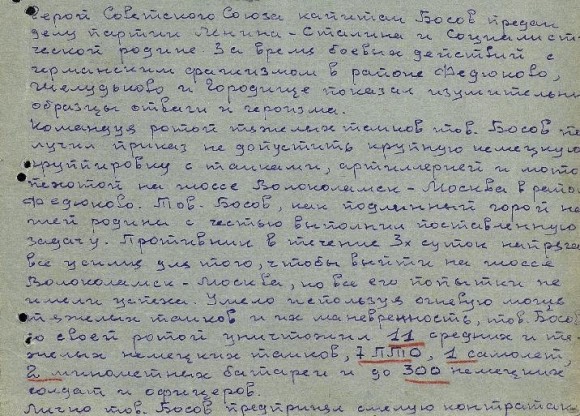 Герой Советского Союза капитан Босов предан
делу партии Ленина-Сталина и Социалисти-
ческой родине За время боевых действий с
германским фашизмом в районе Федюково,
Шелудьково и Городище показал изумительные
образцы отваги и героизма.
Командуя ротой тяжелых танков тов. Босов по-
лучил приказ не допустить крупную немецкую
группировку с танками, артиллерией и мото-
пехотой на шоссе Волоколамск-Москва в районе
Федюково. Тов. Босов, как подлинный герой на-
шей родины с честью выполнил поставленную
задачу. Противник в течение 3х суток напрягал
все усилия для того, чтобы выйти на шоссе
Волоколамск-Москва, но все его попытки не
имели успеха. Умело используя огневую мощь
тяжелых танков и их маневренность, тов. Босов
со своей ротой уничтожил 11 средних и тя-
желых немецких танков, 7 ПТО, 1 самолет,
2 минометных батареи и до 300 немецких
солдат и офицеров.
Лично тов. Босов предпринял смелую контратаку